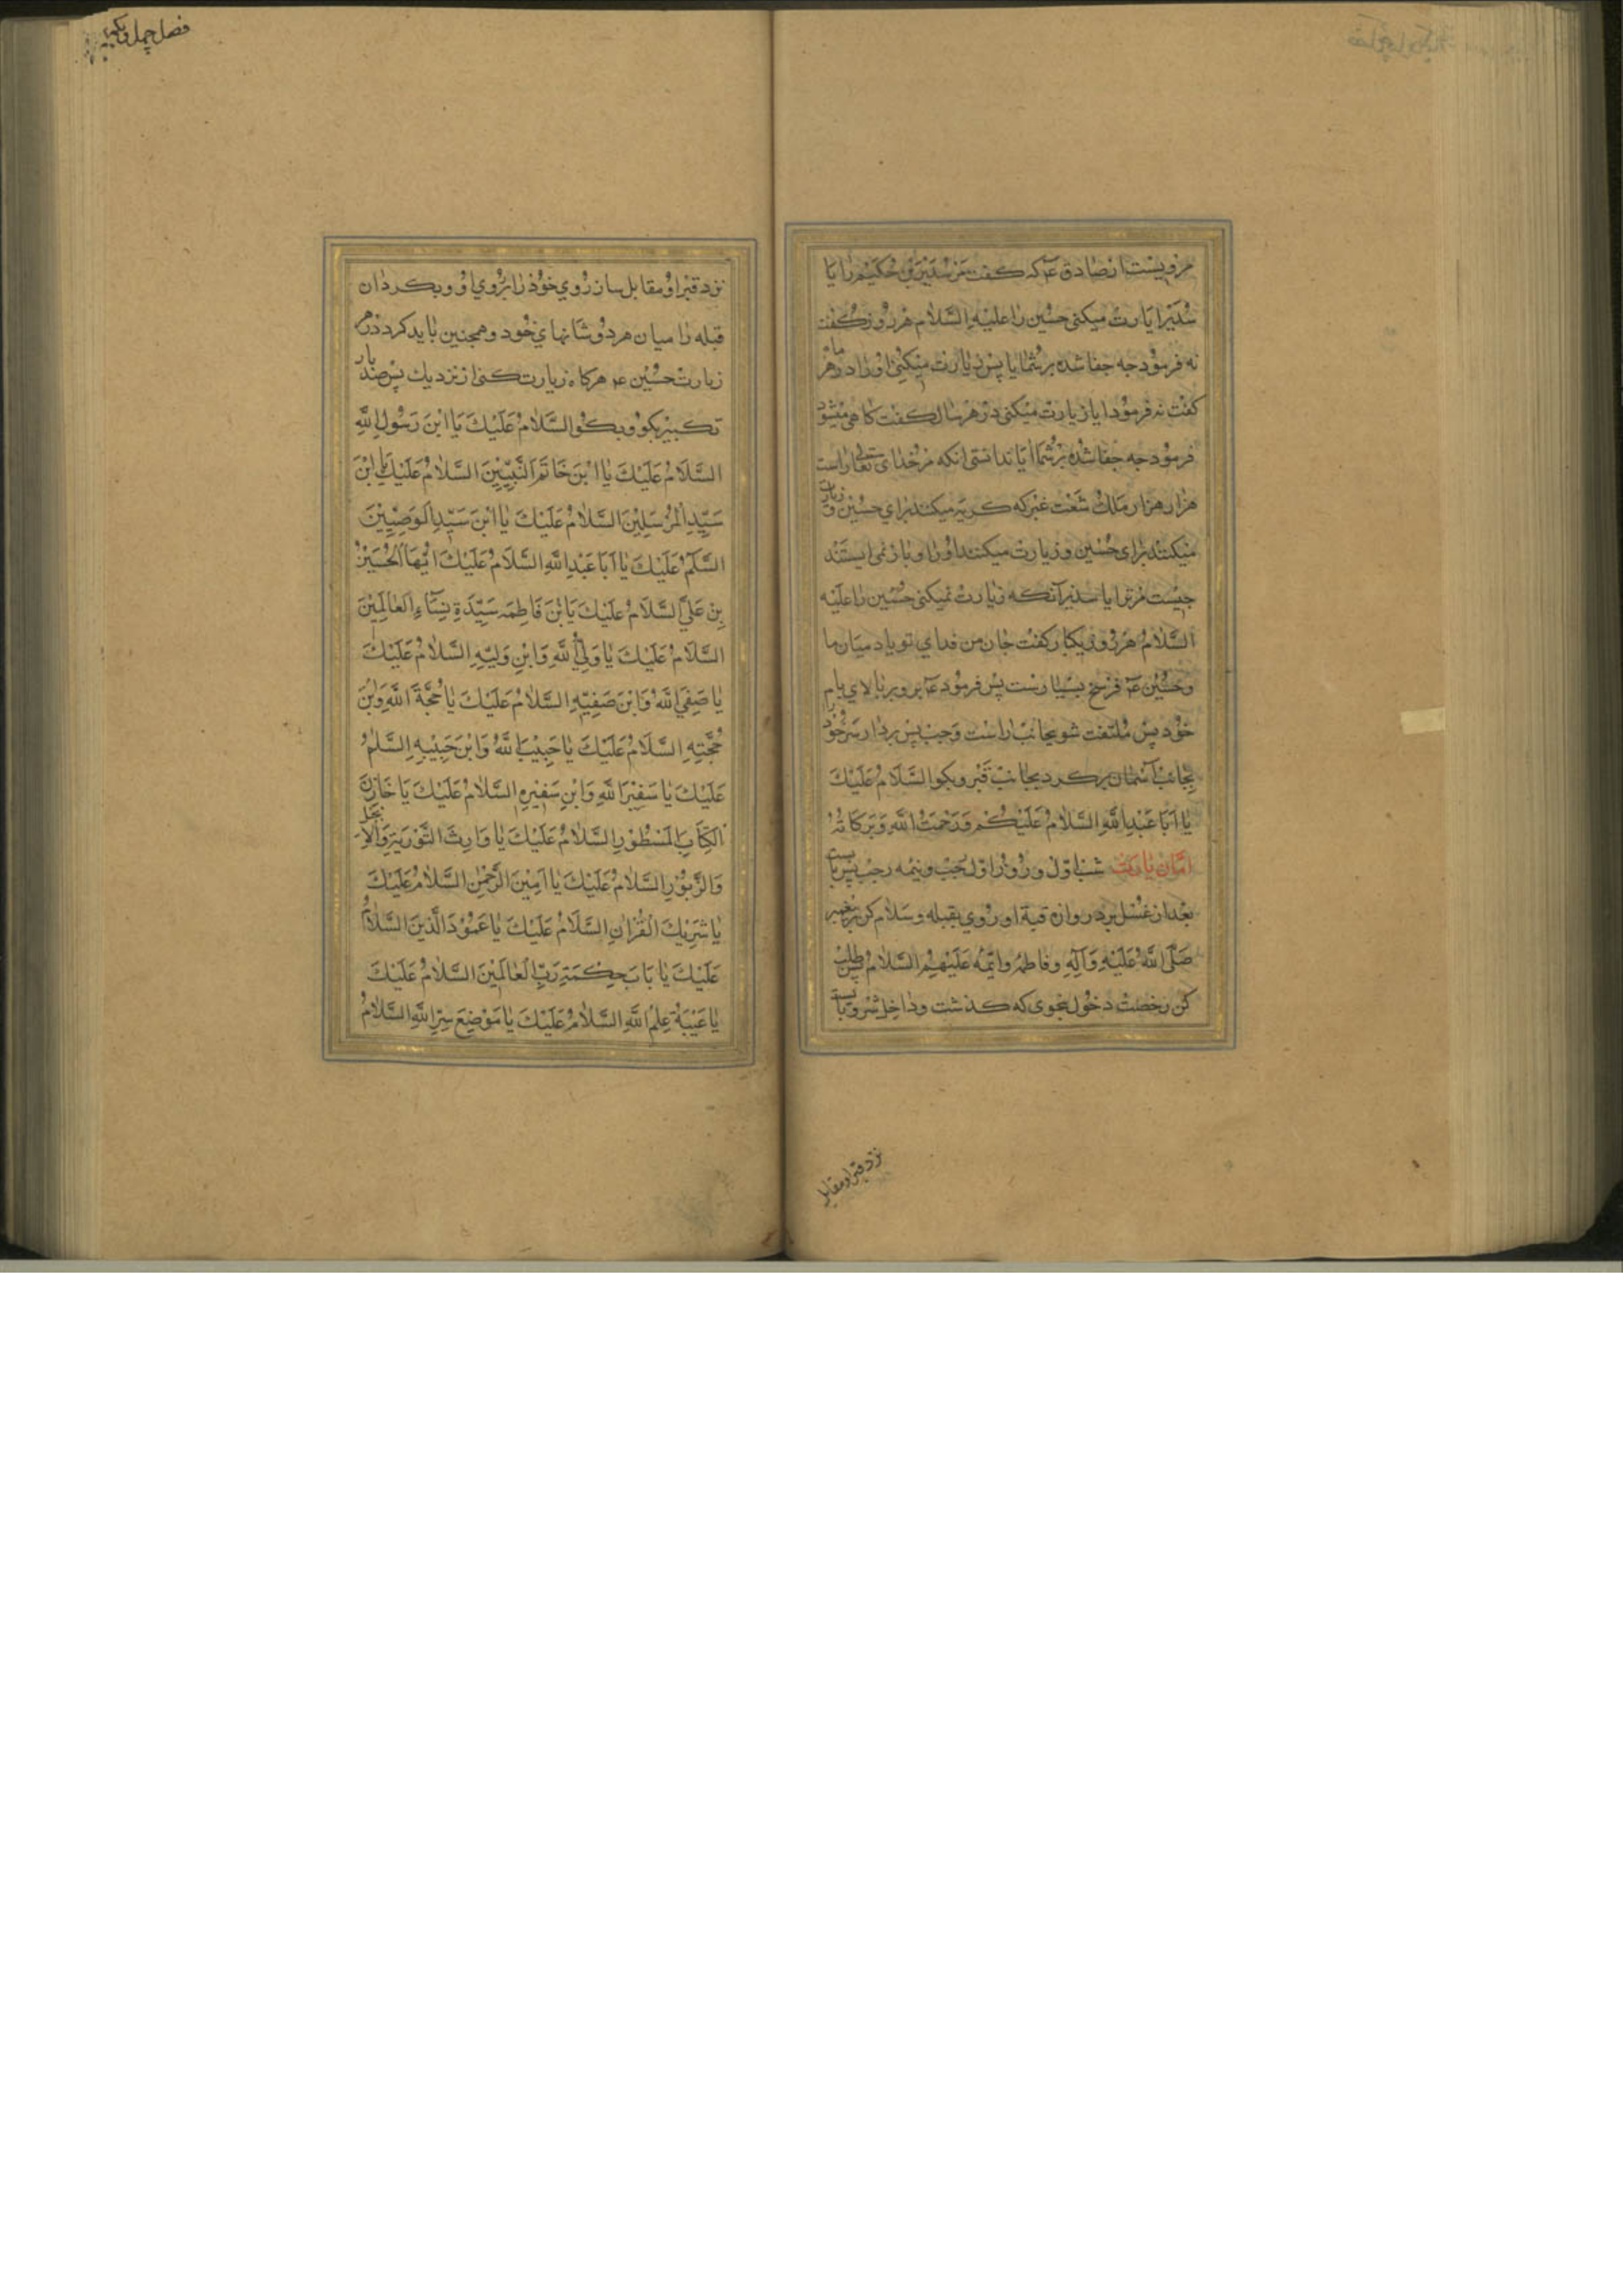 مرویست از صادق عه که کفت مر سدیر بن حکیم را یا
سدیر ایا زیارت میکنی حسین را علیه السلام هر روز کفت
نه فرمود جه جفا شده بر شما ایا پس زیارت میکنی او را در هر ماه
کفت نه فرمود ایا زیارت میکنی در هر سال کفت کاهی میشود
فرمود جه جفا شده بر شما ایا ندانستی انکه مر خدای تعالی راست
هزار هزار ملك شعث غبر که کریه میکنند برای حسین و زیارت
میکنند برای حسین و زیارت میکنند او را و باز نمی ایستند
جیست مر ترا یا سدیر آنکه زیارت نمیکنی حسین را علیه
السلام هر روز یکبار کفت جان من فدای تو باد میان ما
و حسین عه فرسخ بسیارست پس فرمود عه برو بر بالای بام
خود پس ملتفت شو بجانب راست و جب پس بردار سر خود را
بجانب آسمان برکرد بجانب قبر و بکو السلام علیك
یا ابا عبد الله السلام علیکم و رحمت الله و برکاته
اما زیارت شب اول و روز اول رجب و نیمه رجب پس بایست
بعد از غسل بر دروازه قبة او روی بقبله و سلام کن بر پیغمبر
صلی الله علیه وآله و فاطمه وائمه علیهم السلام پس طلب
کن رخصت دخول بنحوی که کذشت و داخل شو و بایست
نزد قبر او مقابل
فصل چهل و یکم
نزد قبر او مقابل ساز روی خود را بروی او و بکردان
قبله را میان هر دو شانهای خود و همجنین باید کرد در هر
زیارت حسین عه هرکاه زیارت کنی از نزدیك پس صد بار
تکبیر بکو و بکو السَّلَامُ عَلَیْكَ یَا ابْنَ رَسُولِ اللَّهِ
السَّلَامُ عَلَیْكَ یَا ابْنَ خَاتَمِ النَّبِیِّینَ السَّلَامُ عَلَیْكَ یَا ابْنَ
سَیِّدِ الْمُرْسَلِینَ السَّلَامُ عَلَیْكَ یَا ابْنَ سَیِّدِ الْوَصِیِّینَ
السَّلَمُ عَلَیْكَ یَا اَبَا عَبْدِ اللَّهِ السَّلَامُ عَلَیْكَ اَیُّهَا الْحُسَیْنُ
بْنَ عَلِیٍّ السَّلَامُ عَلَیْكَ یَا بْنَ فَاطِمَه سَیِّدَةِ نِسَاءِ الْعَالَمِینَ
السَّلَامُ عَلَیْكَ یَا وَلِیَّ اللَّهِ وَابْنِ وَلِیِّهِ السَّلَامُ عَلَیْكَ
یَا صَفِیَّ اللَّهِ وَابْنَ صَفِیِّهِ السَّلَامُ عَلَیْكَ یَا حُجَّةَ اللَّهِ وَابْنَ
حُجَّتِهِ السَّلَامُ عَلَیْكَ یَا حَبِیْبَ اللَّهِ وَابْنَ حَبِیْبِهِ السَّلَمُ
عَلَیْكَ یَا سَفِیْرَ اللَّهِ وَابْنِ سَفِیْرِهِ السَّلَامُ عَلَیْكَ یَا خَازِنَ
الْکِتَابِ الْمَسْطُوْرِ السَّلَامُ عَلَیْكَ یَا وَارِثَ التَّوْرَیةِ وَالْاِنجیل
وَالزَّبُوْرِ السَّلَامُ عَلَیْكَ یَا اَمِیْنَ الرَّحْمٰنِ السَّلَامُ عَلَیْكَ
یَا شَرِیْكَ الْقُرْاٰنِ السَّلَامُ عَلَیْكَ یَا عَمُوْدَ الدِّیْنِ السَّلَامُ
عَلَیْكَ یَا بَابَ حِکْمَةِ رَبِّ الْعَالَمِیْنَ السَّلَامُ عَلَیْكَ
یَا عَیْبَةَ عِلْمِ اللَّهِ السَّلَامُ عَلَیْكَ یَا مَوْضِعَ سِرِّ اللَّهِ السَّلَامُ